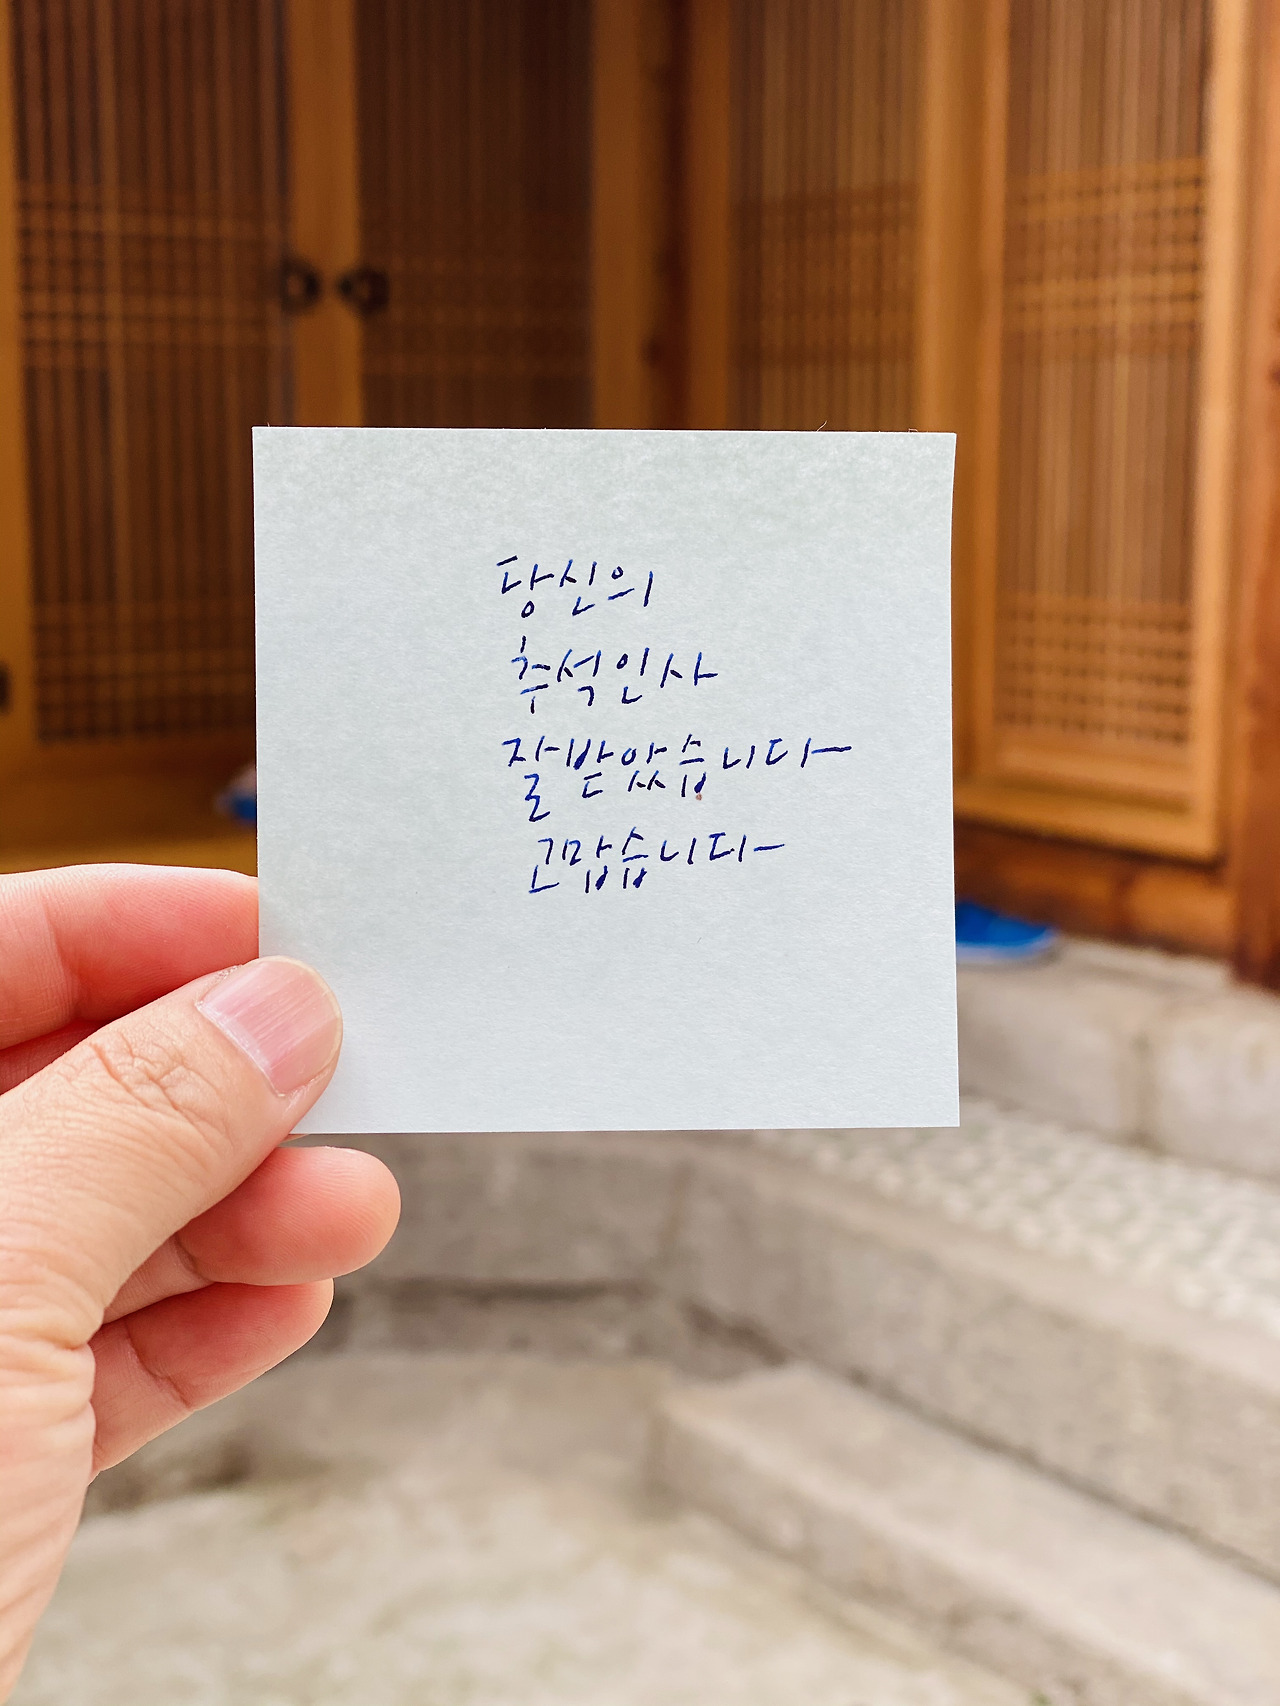 당신의
추석인사
잘 받았습니다
고맙습니다